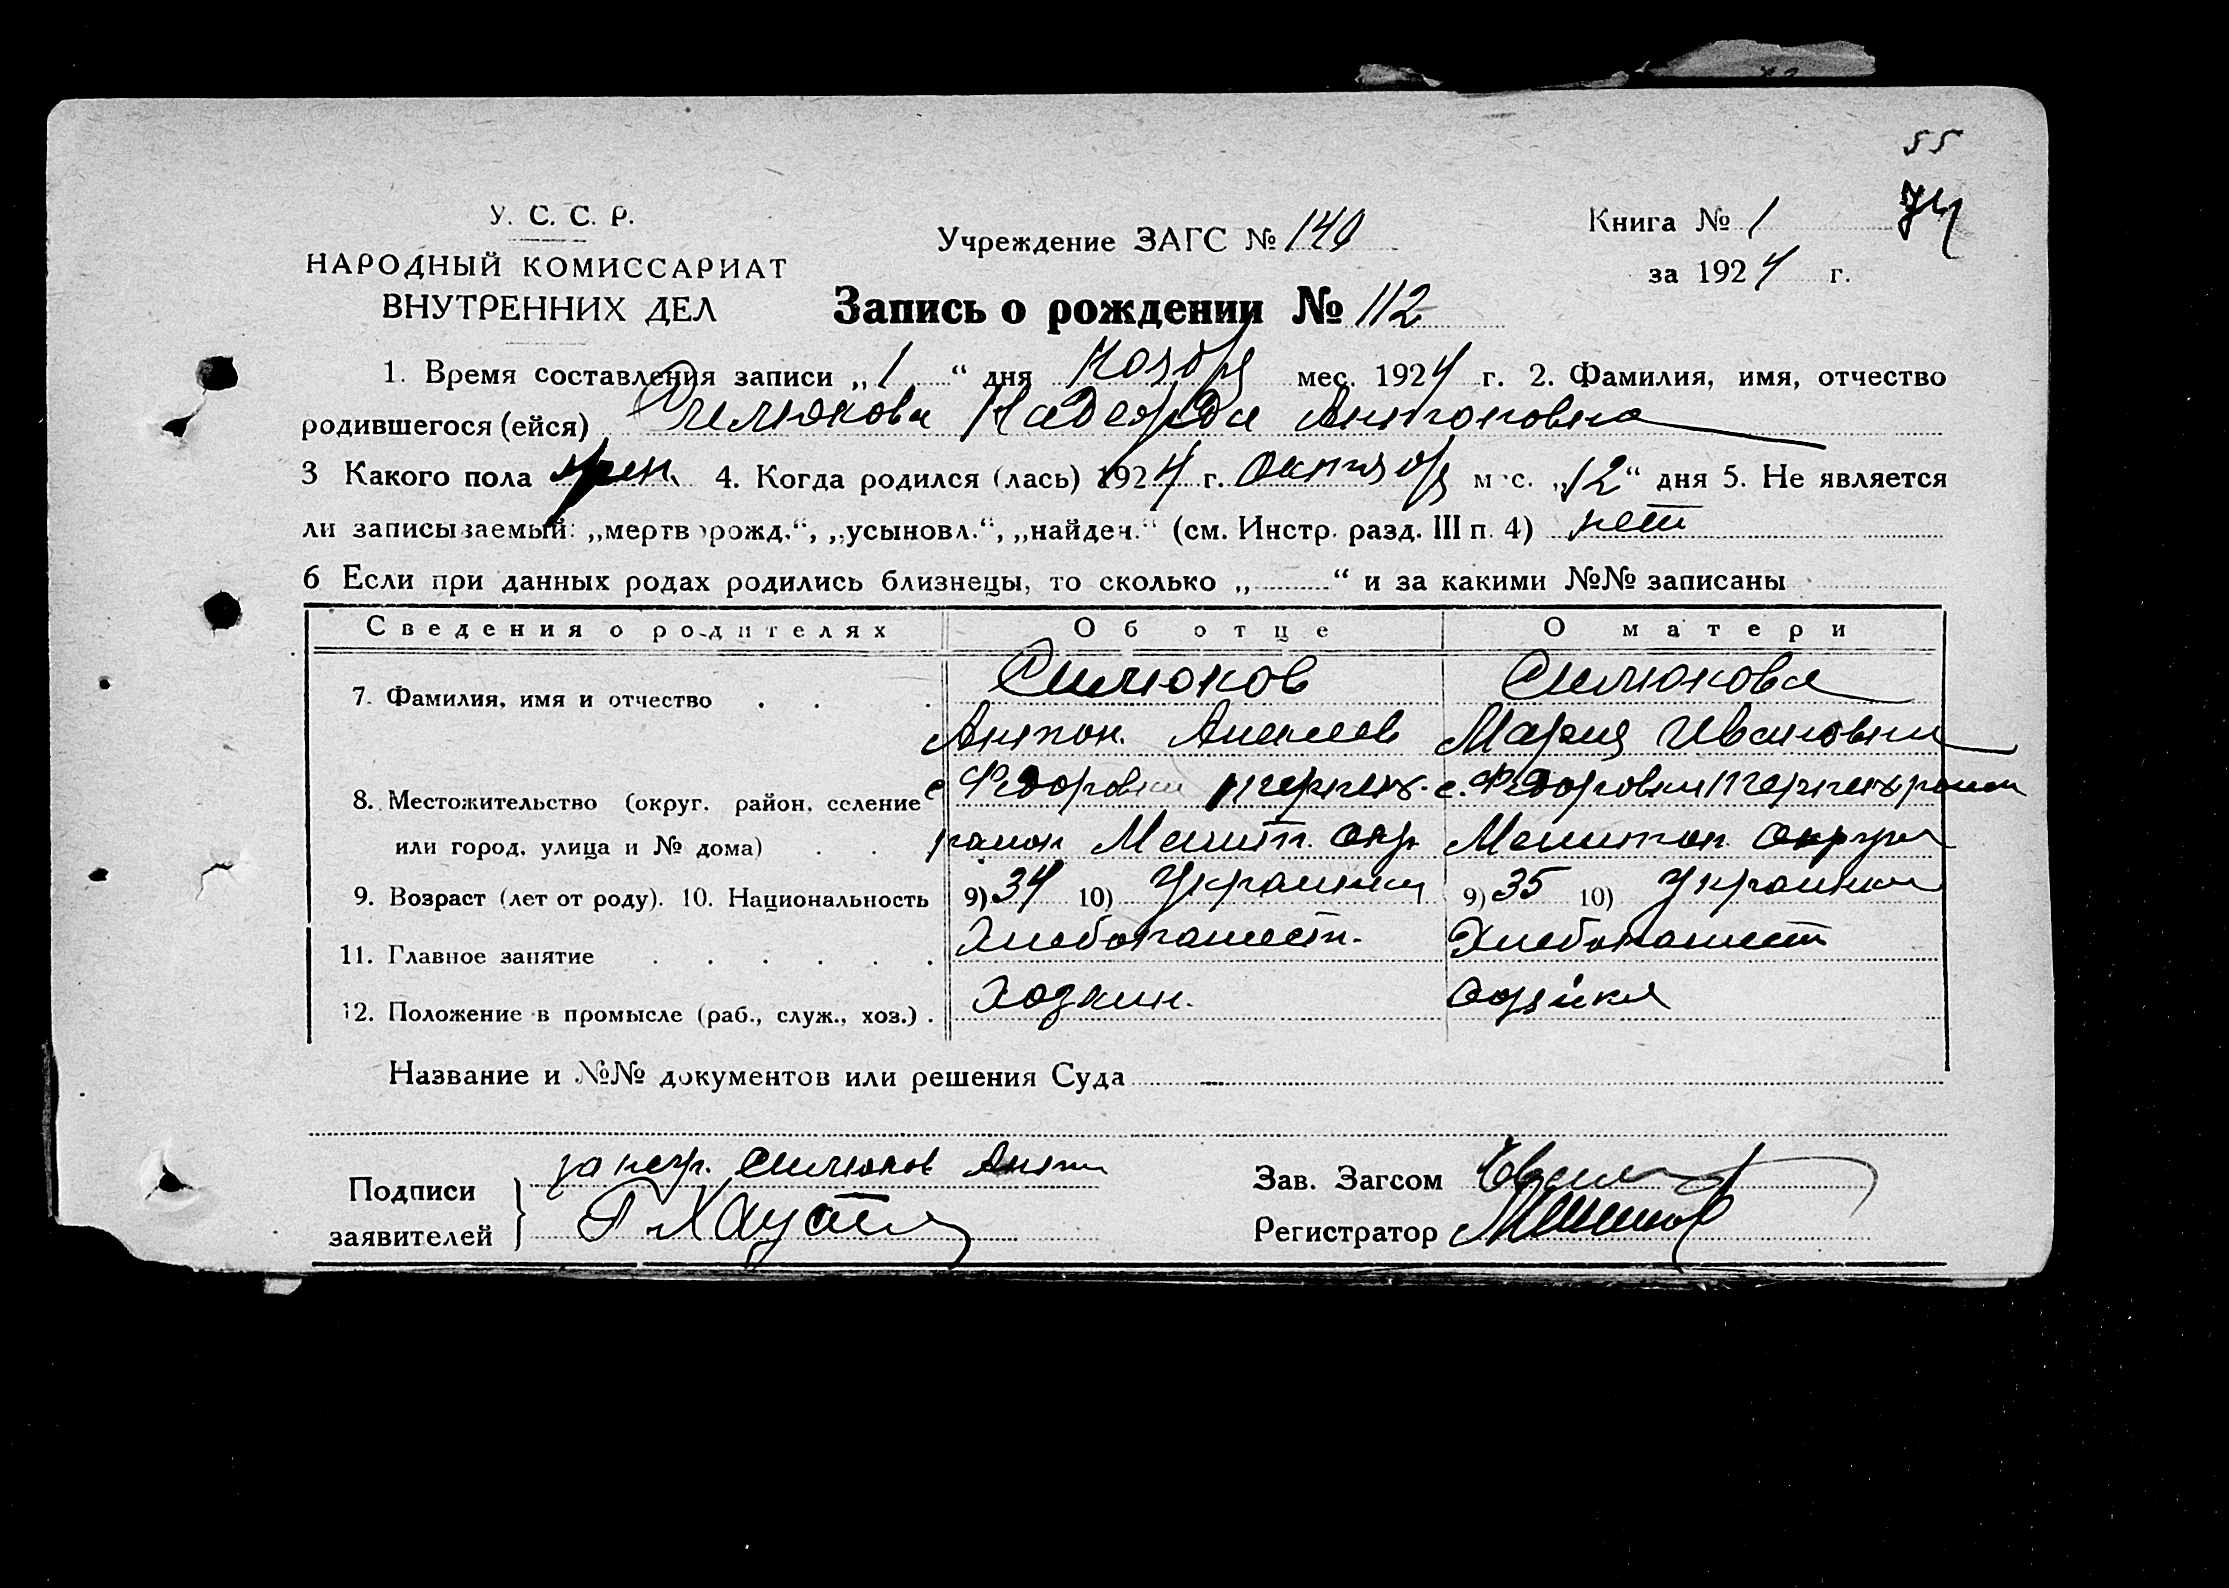 55
74
У. С. С. Р.
НАРОДНЫЙ КОМИССАРИАТ
ВНУТРЕННИХ ДЕЛ
Учреждение ЗАГС № 140
Книга № 1
за 1924 г.
Запись о рождении № 112
1. Время составления записи „1“ дня Ноября мес. 1924 г. 2. Фамилия, имя, отчество
родившегося (ейся) Силюкова Надежда Антоновна
3 Какого пола жен. 4. Когда родился (лась) 1924 г. Октября мес. „12“ дня 5. Не является
ли записываемый: „мертворожд.“, „усыновл.“, „найден.“ (см. Инстр. разд. III п. 4) нет
6 Если при данных родах родились близнецы, то сколько „ “ и за какими №№ записаны
Сведения о родителях Об отце О матери
7. Фамилия, имя и отчество Силюков Силюкова
Антон Алексеев Мария Ивановна
8. Местожительство (округ, район, селение с. Федоровки с. Федоровки район
или город, улица и № дома) район Мелит. окр. Мелитоп. округа
9. Возраст (лет от роду). 10. Национальность 9) 34 10) 9) 35 10)
11. Главное занятие Хлебопашест. Хлебопашест
12. Положение в промысле (раб., служ., хоз.) Хозяин.
Название и №№ документов или решения Суда
Подписи заявителей за негр. Силюков Антон
Зав. Загсом
Регистратор